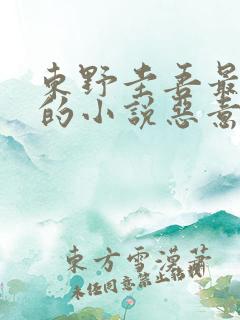 東野圭吾最
的小説惡意
東方雪漠蕭
未经同意禁止转载